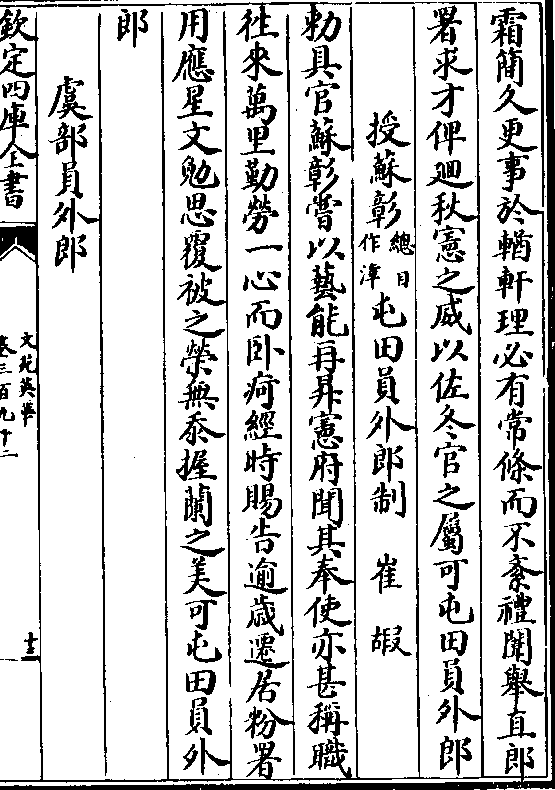 霜簡久更事於輶軒理必有常條而不紊禮闈舉直郎
署求才俾迴秋憲之威以佐冬官之屬可屯田員外郎
授蘇彰總目作漳屯田員外郎制　崔嘏
勅具官蘇彰嘗以藝能再昇憲府聞其奉使亦甚稱職
往來萬里勤勞一心而卧痾經時賜告逾歳遷居粉署
用應星文勉思覆被之榮無忝握蘭之美可屯田員外
郎
虞部員外郎
欽定四庫全書
文苑英華
卷三百九十二
十三